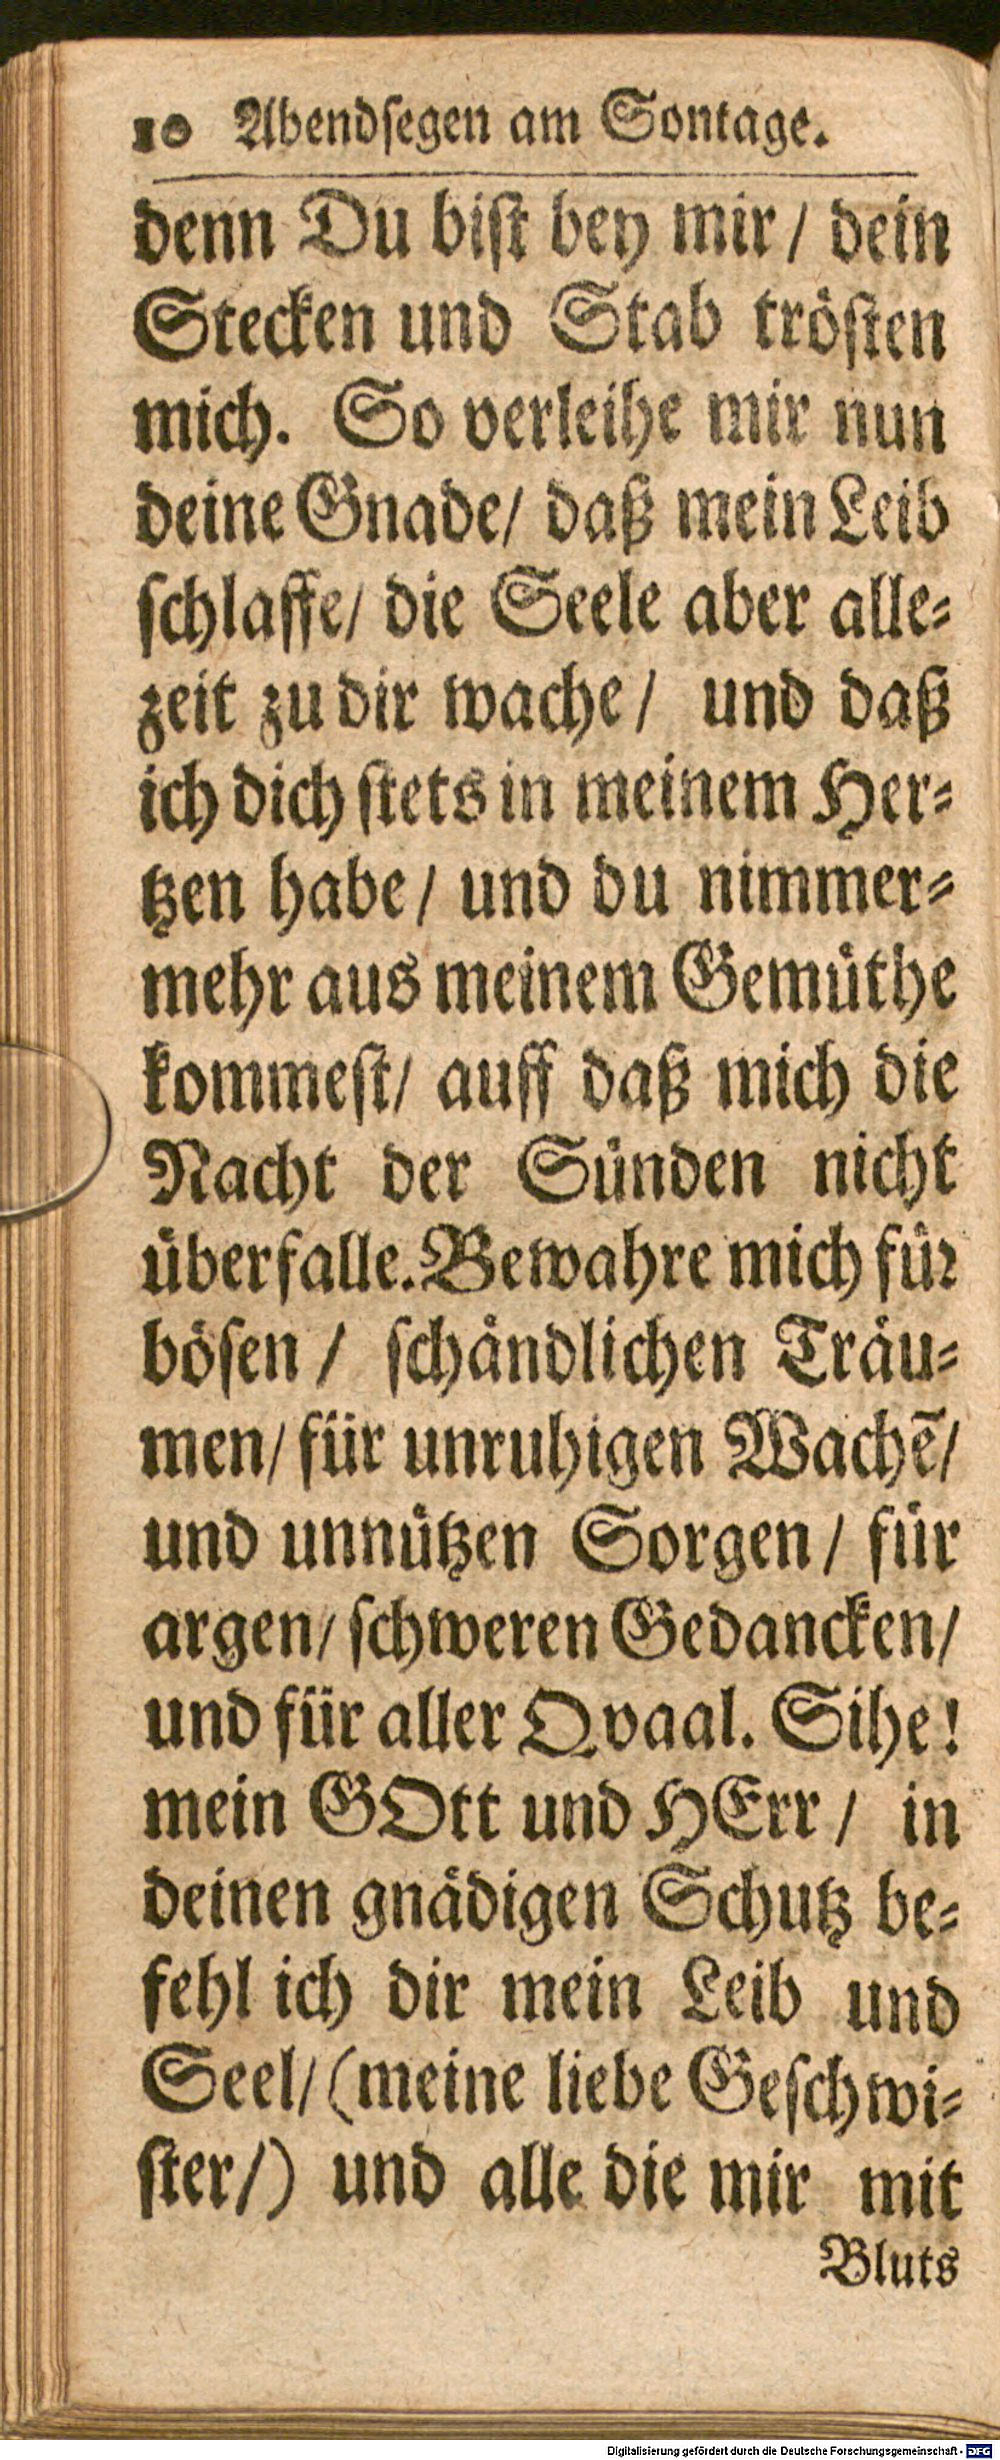 10 Abendſegen am Sontage.
denn Du biſt bey mir / dein
Stecken und Stab tröſten
mich. So verleihe mir nun
deine Gnade / daß mein Leib
ſchlaffe / die Seele aber alle⸗
zeit zu dir wache / und daß
ich dich ſtets in meinem Her⸗
tzen habe / und du nimmer⸗
mehr aus meinem Gemüthe
kommeſt / auff daß mich die
Nacht der Sünden nicht
überfalle. Bewahre mich für
böſen / ſchändlichen Träu⸗
men / für unruhigen Wachē /
und unnützen Sorgen / für
argen / ſchweren Gedancken /
und für aller Qvaal. Sihe!
mein GOtt und HErr / in
deinen gnädigen Schutz be⸗
fehl ich dir mein Leib und
Seel / (meine liebe Geſchwi⸗
ſter /) und alle die mir mit
Bluts
Digitalisierung gefördert durch die Deutsche Forschungsgemeinschaft - DFG